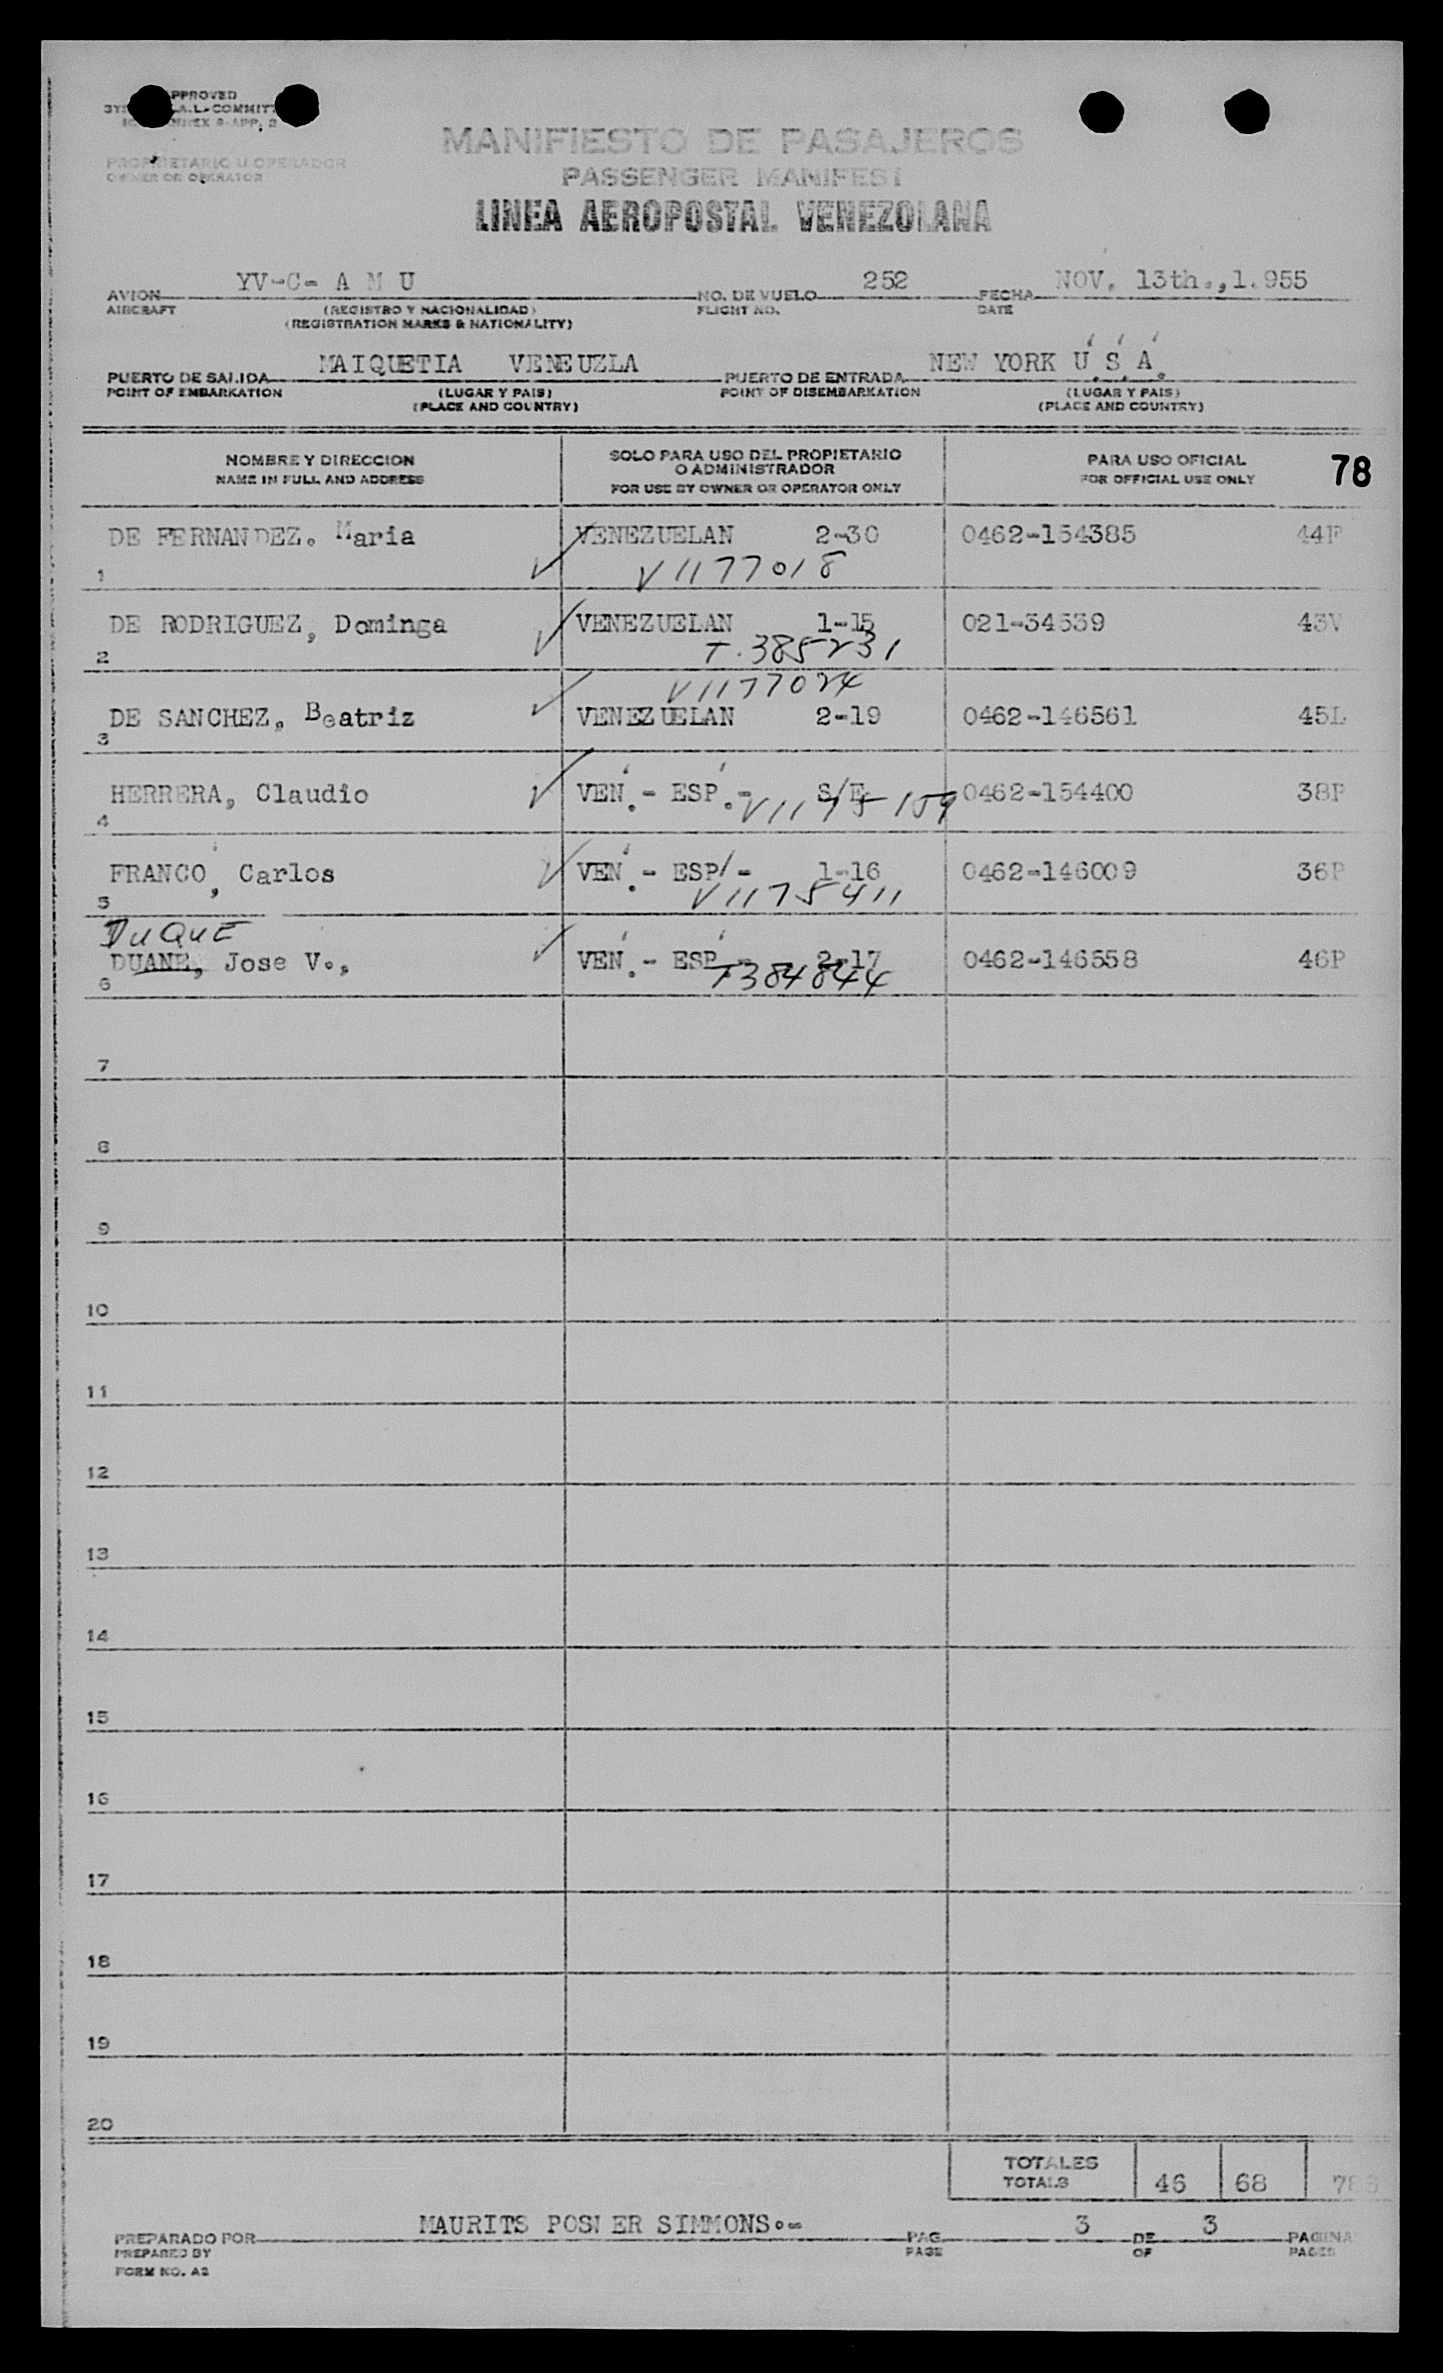 PPROVED
A.L. COMMITT
NNEX 9-APP. 2
PROPRIETARIO U OPERADOR
OWNER OR OPERATOR
MANIFIESTO DE PASAJEROS
PASSENGER MANIFEST
LINEA AEROPOSTAL VENEZOLANA
AVION YV-C- A M U NO. DE VUELO 252 FECHA NOV. 13th.,1.955
AIRCRAFT (REGISTRO Y NACIONALIDAD) FLIGHT NO. DATE
(REGISTRATION MARKS & NATIONALITY)
PUERTO DE SALIDA MAIQUETIA VENEUZLA PUERTO DE ENTRADA NEW YORK U.S.A.
POINT OF EMBARKATION (LUGAR Y PAIS) POINT OF DISEMBARKATION (LUGAR Y PAIS)
(PLACE AND COUNTRY) (PLACE AND COUNTRY)
NOMBRE Y DIRECCION SOLO PARA USO DEL PROPIETARIO PARA USO OFICIAL 78
O ADMINISTRADOR
NAME IN FULL AND ADDRESS FOR USE BY OWNER OR OPERATOR ONLY FOR OFFICIAL USE ONLY
DE FERNANDEZ. Maria VENEZUELAN 2-30 0462-154385 44P
1 V1177018
DE RODRIGUEZ, Dominga VENEZUELAN 1-15 021-34539 43V
2 T.385231
V1177024
DE SANCHEZ, Beatriz VENEZUELAN 2-19 0462-146561 45L
3
HERRERA, Claudio VEN.- ESP.- S/E 0462-154400 38P
4 V1175159
FRANCO, Carlos VEN.- ESP.- 1-16 0462-146009 36P
5 V1175411
DUQUE
DUANE, Jose V., VEN.- ESP.- 2-17 0462-146558 46P
6 T384844
7
8
9
10
11
12
13
14
15
16
17
18
19
20
TOTALES
TOTALS 46 68
PREPARADO POR MAURITS POSNER SIMMONS.- PAG. 3 DE 3 PAGINA
PREPARED BY PAGE OF PAGES
FORM NO. A2